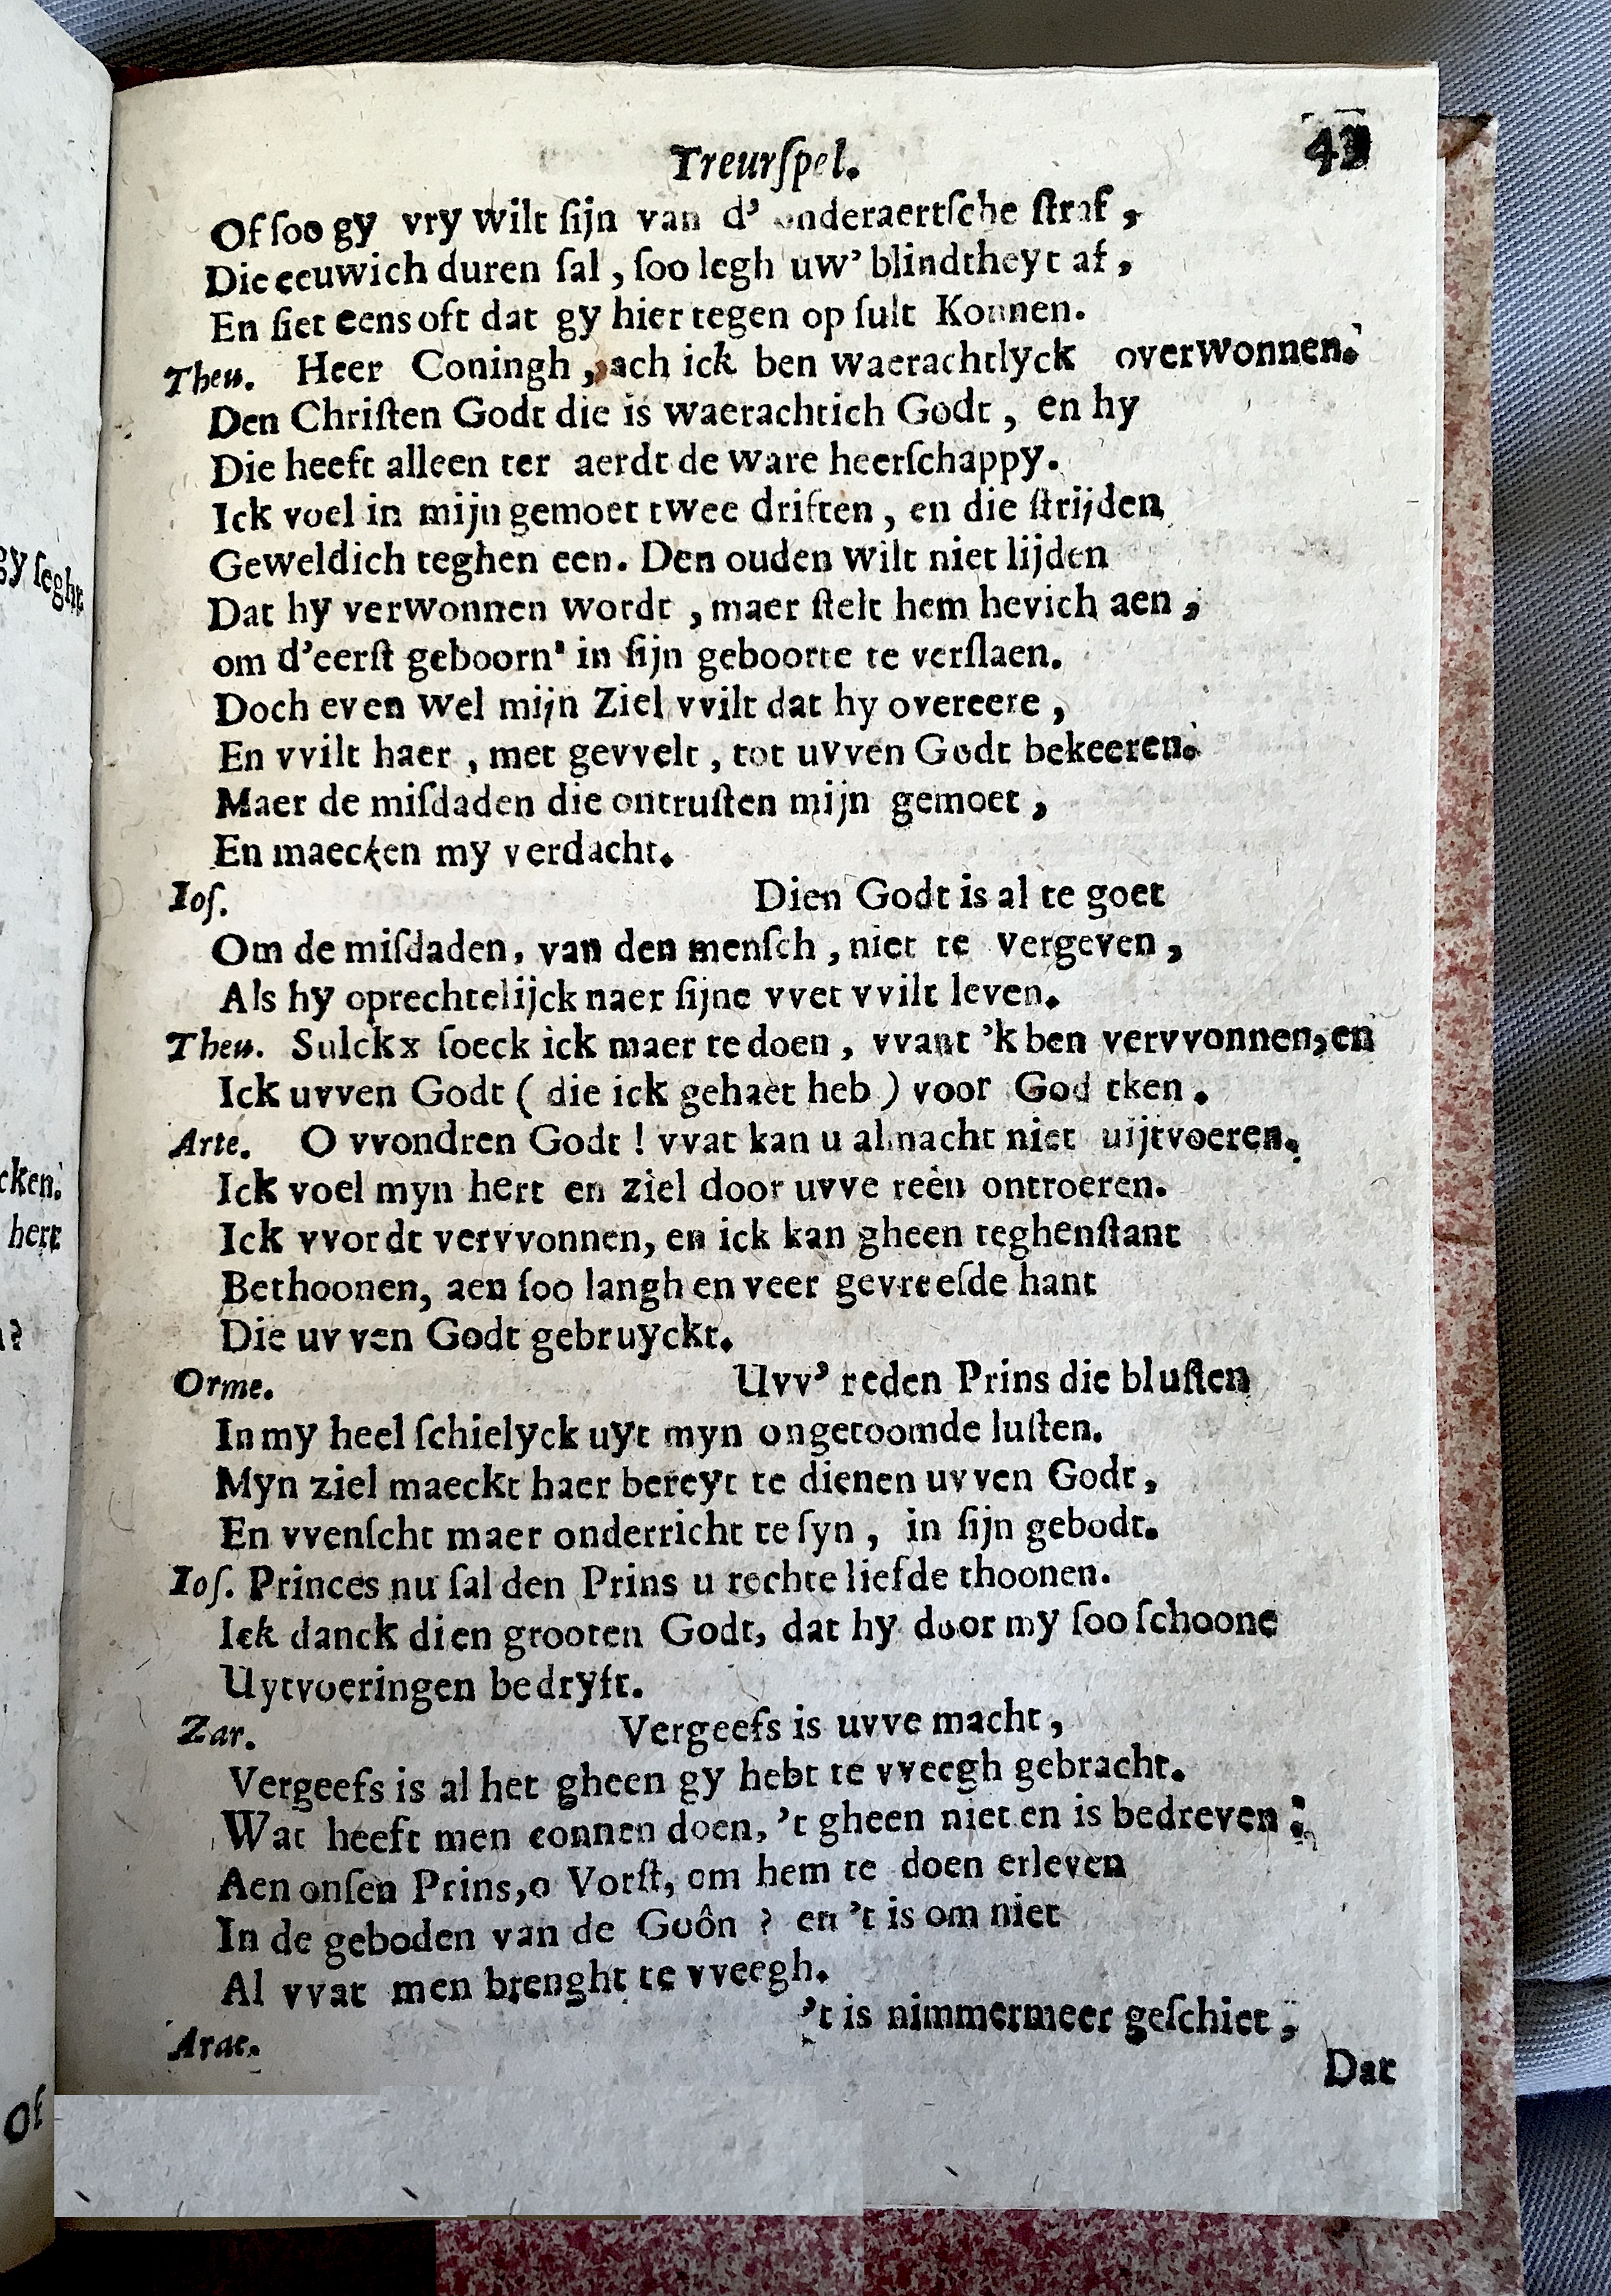 Treurſpel.
Of ſoo gy vry wilt ſijn van d' onderaertſche ſtraf,
Die eeuwich duren ſal, ſoo legh uw' blindtheyt af,
En ſiet eens oft dat gy hier tegen op ſult Konnen.
Theu. Heer Coningh, ach ick ben waerachtlyck overwonnen.
Den Chriſten Godt die is waerachtich Godt, en hy
Die heeft alleen ter aerdt de ware heerſchappy.
Ick voel in mijn gemoet twee driften, en die ſtrijden
Geweldich teghen een. Den ouden wilt niet lijden
Dat hy verwonnen wordt, maer ſtelt hem hevich aen,
om d'eerſt geboorn' in ſijn geboorte te verſlaen.
Doch even wel mijn Ziel vvilt dat hy overeere,
En vvilt haer, met gevvelt, tot uvven Godt bekeeren.
Maer de miſdaden die ontruſten mijn gemoet,
En maecken my verdacht.
Ioſ. Dien Godt is al te goet
Om de miſdaden, van den menſch, niet te vergeven,
Als hy oprechtelijck naer ſijne vvet vvilt leven.
Theu. Sulckx ſoeck ick maer te doen, vvant 'k ben vervvonnen, en
Ick uvven Godt (die ick gehaet heb) voor God tken.
Arte. O vvondren Godt! vvat kan u almacht niet uijtvoeren.
Ick voel myn hert en ziel door uvve reên ontroeren.
Ick vvordt vervvonnen, en ick kan gheen teghenſtant
Bethoonen, aen ſoo langh en veer gevreeſde hant
Die uvven Godt gebruyckt.
Orme. Uvv' reden Prins die bluſten
In my heel ſchielyck uyt myn ongetoomde luſten.
Myn ziel maeckt haer bereyt te dienen uvven Godt,
En vvenſcht maer onderricht te ſyn, in ſijn gebodt.
Ioſ. Princes nu ſal den Prins u rechte liefde thoonen.
Ick danck dien grooten Godt, dat hy door my ſoo ſchoone
Uytvoeringen bedryft.
Zar. Vergeefs is uvve macht,
Vergeefs is al het gheen gy hebt te vveegh gebracht.
Wat heeft men connen doen, 't gheen niet en is bedreven:
Aen onſen Prins, o Vorſt, om hem te doen erleven
In de geboden van de Goôn? en 't is om niet
Al vvat men brenght te vveegh.
Arac. 't is nimmermeer geſchiet,
Dat
gy ſeght
cken.
hert
?
Of